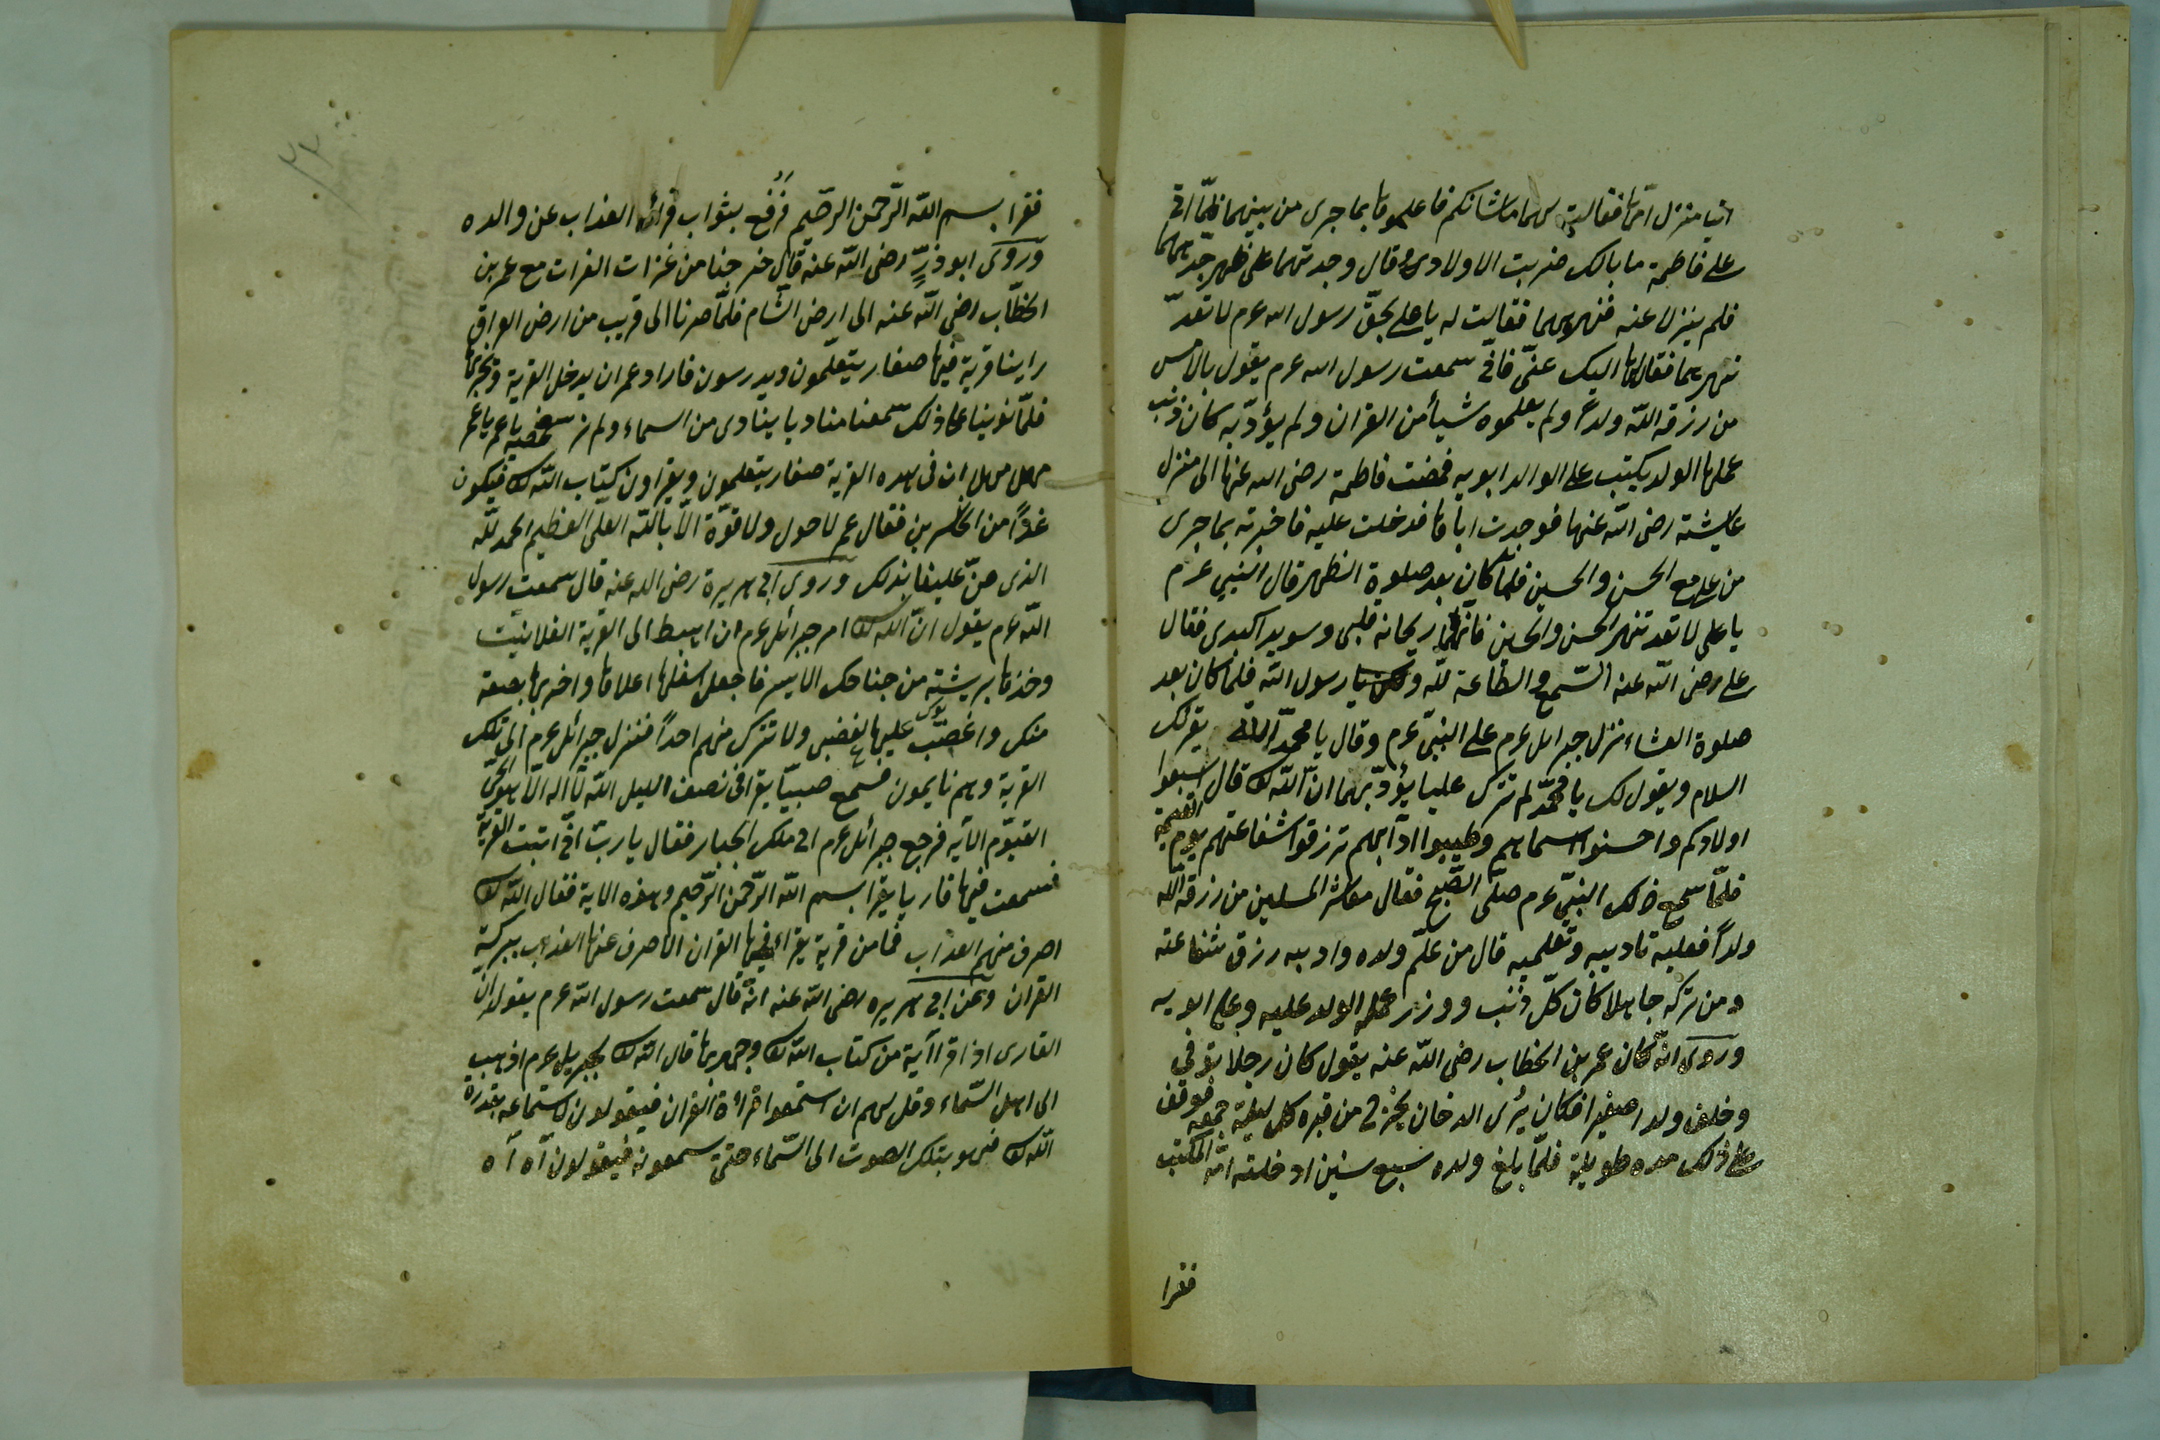 اتيا منزل امّهما فقالت لهما ما شانكم فاعلموها بما جرى من بينهما فلمّا اتى
على فاطمة ما بالك ضربت الاولادى قال وجدتهما على ظهر جدّهما
فلم ينزلا عنه فنهرتهما فقالت له يا على بحقّ رسول الله عرم لا تعد
تنهرهما فقال لها اليك عنّى فانّى سمعت رسول الله عرم يقول بالامس
من رزقه اللّه ولداً ولم يعلموه شيأ من القران ولم يؤدّبه كان ذنب
عملها الولد يكتب على الوالد ابويه فمضت فاطمة رضى الله عنها الى منزل
عايشته رضى اللّه عنها فوجدت اباها فدخلت عليه فاخبرته بما جرى
من على مع الحسن والحسين فلمّا كان بعد صلوة الظهر قال النبي عرم
يا على لا تعد تنهر الحسن والحسين فانّهما ريحانة قلبى وسويدا كبدى فقال
على رضى اللّه عنه السّمع والطاعة للّه ولك يا رسول اللّه فلمّا كان بعد
صلوة العشاء نزل جبرائل عرم على النبىّ عرم وقال يا محمّد اللّه يقرئك
السلام ويقول لك يا محمّد لم تترك عليا يؤدّبهما انّ اللّه تعالى قال
اولادكم واحسنوا اسماهم وطيبوا ادآبهم ترزقوا شفاعتهم يوم القيمة
فلمّا سمع ذلك النبىّ عرم صلّى الصّبح فقال معاشر المسلمين من رزقه اللّه
ولداً فعليه تاديبه وتعلميه قال من علّم ولده وادبه رزق شفاعته
ومن تركه جاهلا كان كلّ ذنب ووزر عمله الولد عليه وعلى ابويه
وروى انّه كان عمر بن الخطاب رضى اللّه عنه يقول كان رجلا توفى
وخلف ولدا صغيرا فكان يُرى الدخان يخرج من قبره كل ليلة جمعة فوقف
على ذلك مده طويلة فلمّا بلغ ولده سبع سنين ادخلته امّه المكتب
فقرا
٢٢
فقرا بسم اللّه الرّحمن الرّحيم فرُفع بثواب قرائة العذاب عن والده
وروى ابو ذرٍّ رضى اللّه عنه قال خرجنا من غزات الفرات مع عمر بن
الخطّاب رضى اللّه عنه الى ارض الشّام فلمّا صرنا الى قريب من ارض العراق
راينا قرية فيها صغار يتعلّمون ويدرسون فاراد عمر ان يدخل القرية ويخربها
فلمّا نوينا على ذلك سمعنا مناديا ينادى من السماء ولم نر شخصه يا عمر يا عمر
مهل مهل ان فى هذه القرية صغار يتعلمون ويقراون كتاب اللّه تعالى فيكون
غدًا من الخاسرين فقال عمر لا حول ولا قوّة الّا باللّه العلى العظيم الحمد للّه
الذى منّ علينا بذلك وروى ابى هريرة رضى الله عنه قال سمعت رسول
اللّه عرم يقول انّ اللّه تعالى امر جبرائل عرم ان اهبط الى القرية الفلانيّت
وخذها بريشته من جناحك الايسر فاجعل اسفلها اعلاها واخربها بصعقة
منك واغضب عليها بغضبى ولا تترك منهم احداً فنزل جبرائل عرم الى تلك
القرية وهم نايمون فسمع صبيّا يقرا فى نصف الليل اللّه لآ اله الّا هو الحىّ
القيوّم الآيه فرجع جبرائل عرم الى ملك الجبار فقال يا ربّ انّى اتيت القرية
فسمعت فيها قاريا يقرا بسم اللّه الرّحمن الرّحيم وهذه الاية فقال اللّه تعالى
اصرف منهم العذاب فما من قرية يقراء فيها القران الّا صرف عنها العذاب ببركة
القران وعن ابى هريره رضى اللّه عنه انّه قال سمعت رسول اللّه عرم يقول انّ
القارى اذا قرا آية من كتاب اللّه تعالى وجهر بها قال اللّه تعالى لجبريل عرم اذهب
الى اهل السّماء وقل لهم ان استمعوا قراءة القران فيقولون لاستماعه بقدرة
اللّه تعالى بتلك الصوت الى السّماء حتى سمعونه فيقولون آه آه